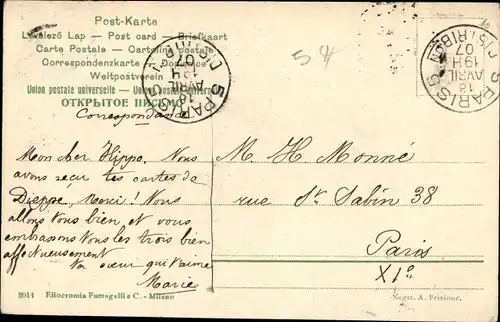 Post-Karte
Levelező Lap — Post card — Briefkaart
Carte Postale — Cartolina postale
Correspondenzkarte — Dopisnice
Weltpostverein
Union postale universelle — Union postale universelle
ОТКРЫТОЕ ПИСЬМО
Correspondance
54
PARIS 5
18
AVRIL
19H
07
DISTRIBUTION
5 PARIS 5
18
AVRIL
19H
07
DISTRIBON
Mon cher Hippo. Nous
avons reçu tes cartes de
Dieppe, Merci! Nous
allons tous bien et vous
embrassons tous les trois bien
affectueusement
Ta sœur qui t'aime
Marie
M. H. Monné
rue St. Sabin 38
Paris
XIe
2014 Eliocromia Fumagalli e C. - Milano
Negat. A. Frizione.